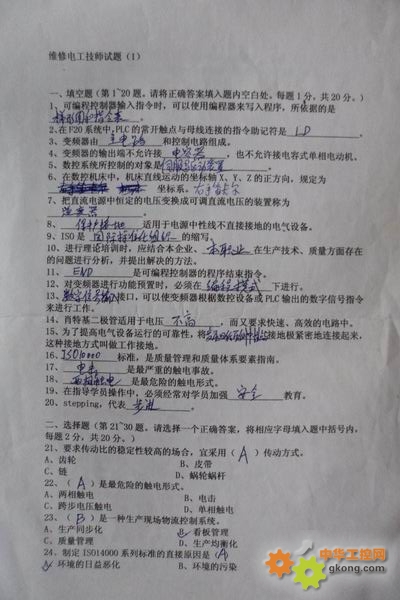 维修电工技师试题（1）
一、填空题（第1~20题。请将正确答案填入题内空白处。每题1分，共20分。）
1、可编程控制器输入指令时，可以使用编程器来写入程序，所依据的是
梯形图和指令表。
2、在F20系统中，PLC的常开触点与母线连接的指令助记符是 LD 。
3、变频器由 主电路 和控制电路组成。
4、变频器的输出端不允许接 电容器 ，也不允许接电容式单相电动机。
5、数控系统所控制的对象是伺服驱动装置。
6、在数控机床中，机床直线运动的坐标轴X、Y、Z的正方向，规定为
坐标系。右手笛卡尔
7、把直流电源中恒定的电压变换成可调直流电压的装置称为
8、 保护接地 适用于电源中性线不直接接地的电气设备。
9、ISO是 国际标准化组织 的缩写。
10、进行理论培训时，应结合本企业、 本职业 在生产技术、质量方面存在
的问题进行分析，并提出解决的方法。
11、 END 是可编程控制器的程序结束指令。
12、对变频器进行功能预置时，必须在 编程模式 下进行。
13、数字信号输入接口，可以使变频器根据数控设备或PLC输出的数字信号指令
来进行工作。
14、肖特基二极管适用于电压 不高 ，而又要求快速、高效的电路中。
15、为了提高电气设备运行的可靠性，将 与接地极紧密地连接起来，
这种接地方式叫做工作接地。
16、ISO10000 标准，是质量管理和质量体系要素指南。
17、 电击 是最严重的触电事故。
18、两相触电 是最危险的触电形式。
19、在指导学员操作中，必须经常对学员加强 安全 教育。
20、stepping，代表 步进 。
二、选择题（第21~30题。请选择一个正确答案，将相应字母填入题中括号内，
每题2分，共20分。）
21、要求传动比的稳定性较高的场合，宜采用（ A ）传动方式。
A、齿轮 B、皮带
C、链 D、蜗轮蜗杆
22、（ A ）是最危险的触电形式。
A、两相触电 B、电击
C、跨步电压触电 D、单相触电
23、（ B ）是一种生产现场物流控制系统。
A、生产同步化 看板管理
C、质量管理 D、生产均衡化
24、制定ISO14000系列标准的直接原因是（A）
环境的日益恶化 B、环境的污染
中华工控网
gkong.com